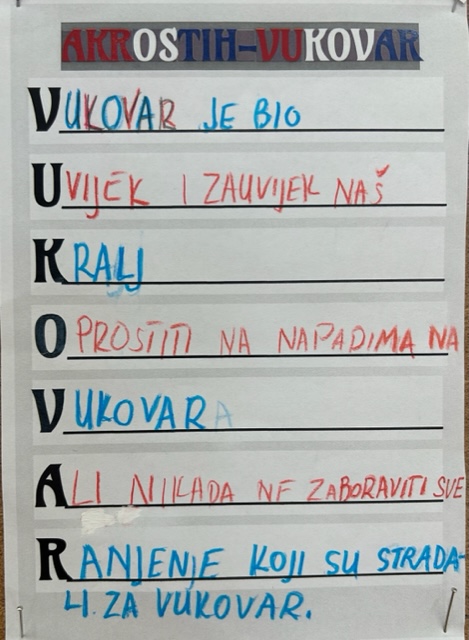 AKROSTIH-VUKOVAR
VUKOVAR JE BIO
UVIJEK I ZAUVIJEK NAŠ
KRALJ
OPROSTITI NA NAPADIMA NA
VUKOVARA
ALI NIKADA NE ZABORAVITI SVE
RANJENJE KOJI SU STRADA-
LI ZA VUKOVAR.